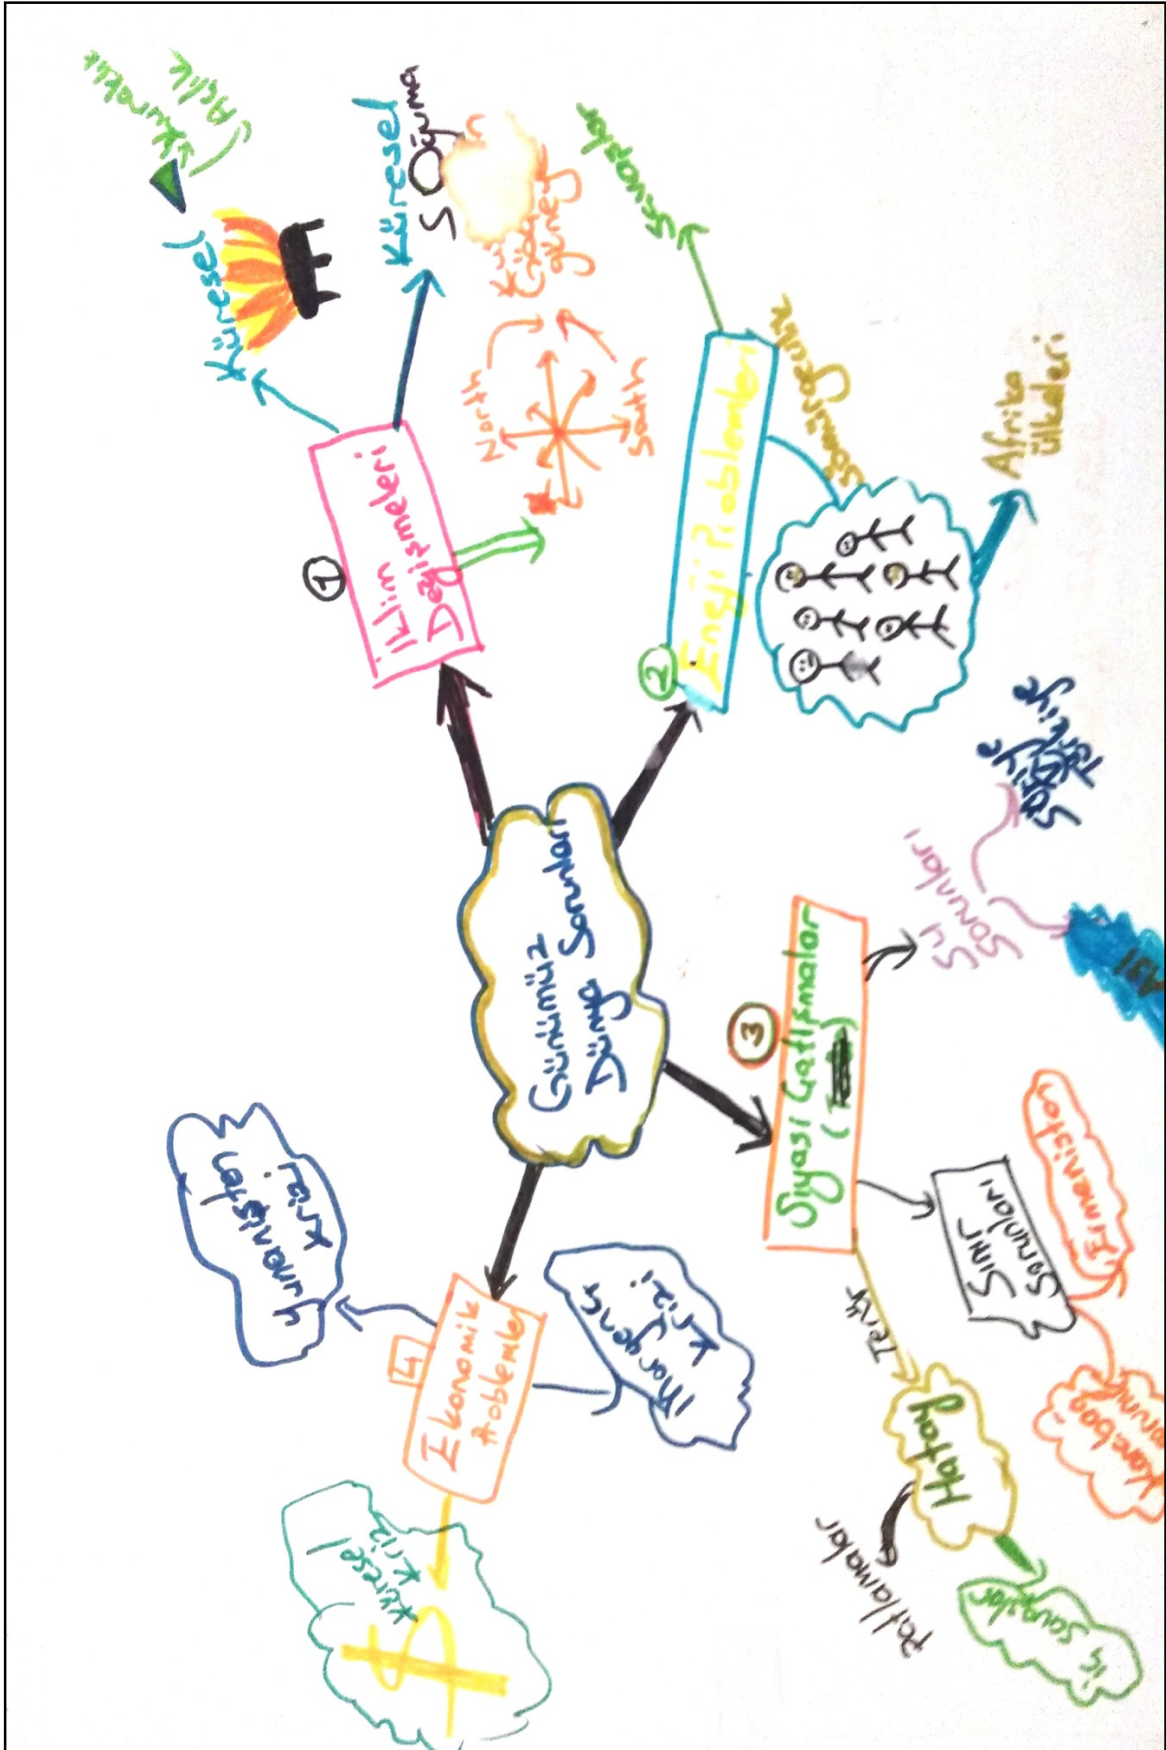 Günümüz
Dünya Sorunları
1
İklim
Değişmeleri
Küresel
Kuraklık
Açlık
Küresel
Soğuma
North
South
güney
2
Enerji Problemleri
Savaşlar
Sömürgecilik
Afrika
ülkeleri
3
Siyasi Çatışmalar
Su
Sorunları
Suriye
Türkiye
ASİ
Sınır
Sorunları
Ermenistan
Karabağ
Sorunu
Terör
Hatay
Patlamalar
iç savaşlar
4
Ekonomik
Problemler
Yunanistan
Krizi
Mortgage
Krizi
Küresel
Kriz
$